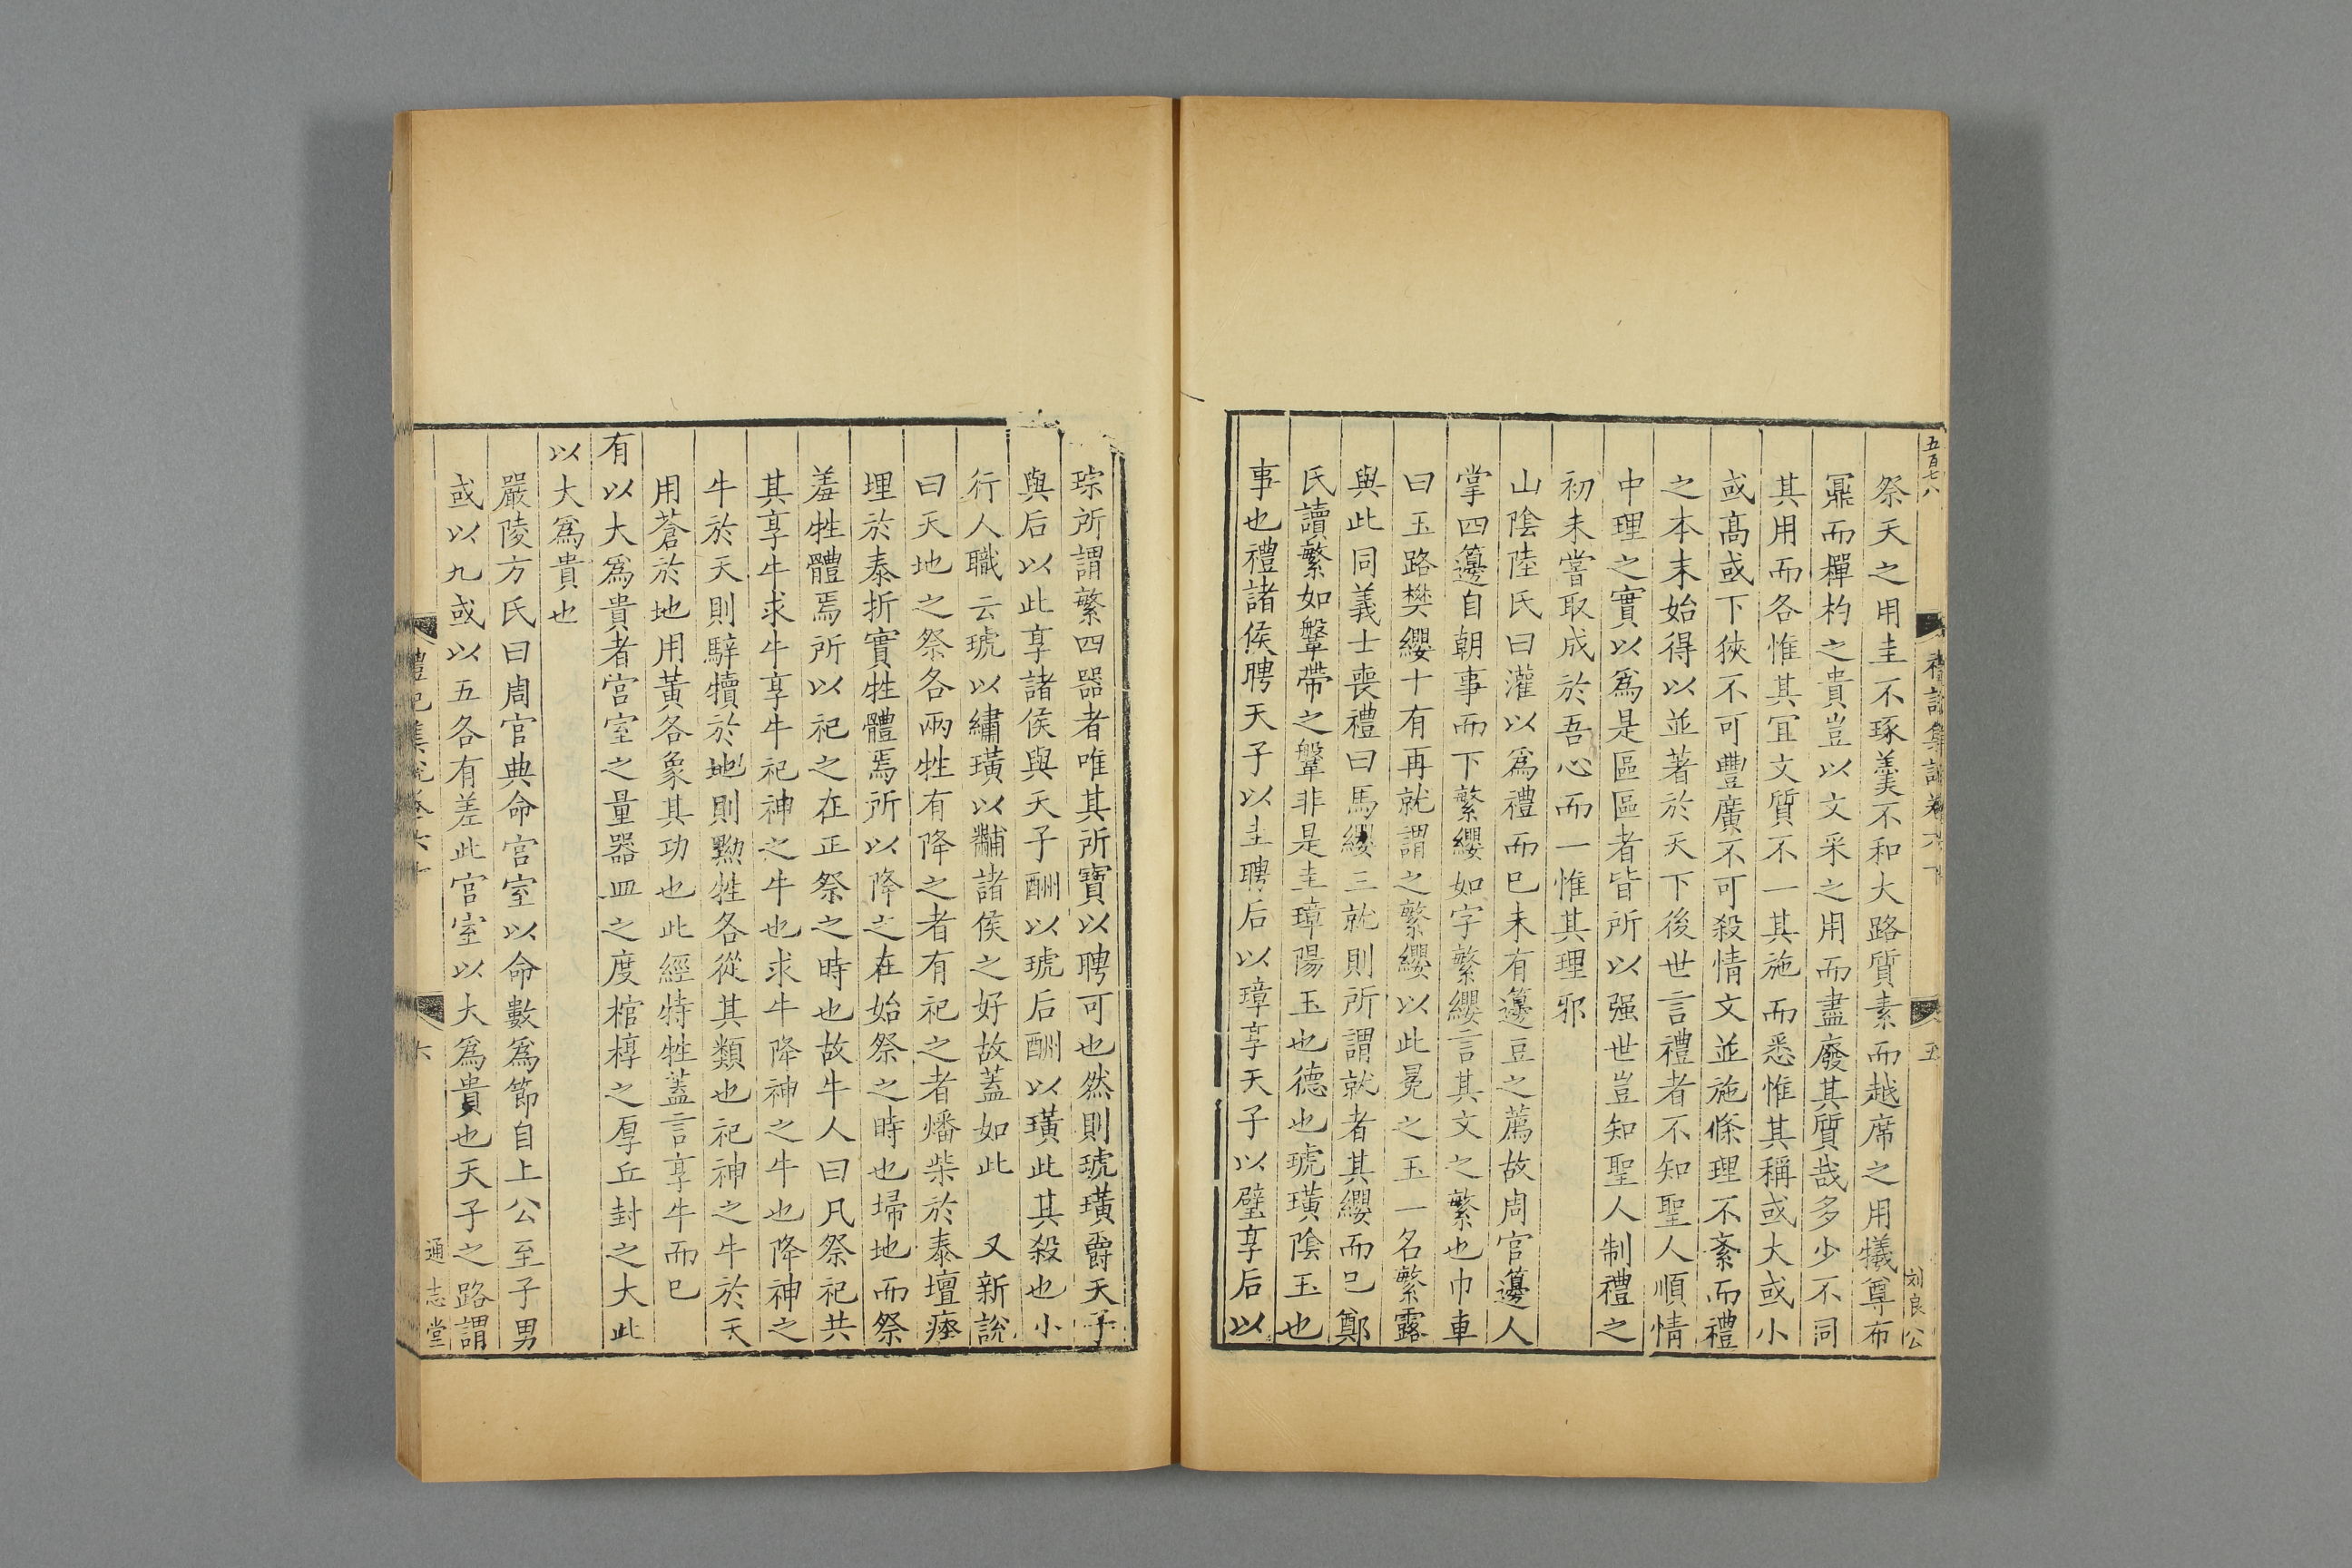 五百七八
禮記集說卷六十
五
刘良公
祭天之用圭不琢羹不和大路質素而越席之用犧尊布
冪而樿杓之貴豈以文采之用而盡廢其質哉多少不同
其用而各惟其宜文質不一其施而悉惟其稱或大或小
或髙或下狹不可豐廣不可殺情文並施條理不紊而禮
之本末始得以並著於天下後世言禮者不知聖人順情
中理之實以爲是區區者皆所以强世豈知聖人制禮之
初未嘗取成於吾心而一惟其理邪
山陰陸氏曰灌以爲禮而巳未有籩豆之薦故周官籩人
掌四籩自朝事而下繁纓如字繁纓言其文之繁也巾車
曰玉路樊纓十有再就謂之繁纓以此冕之玉一名繁露
與此同義士喪禮曰馬纓三就則所謂就者其纓而巳鄭
氏讀繁如鞶帶之鞶非是圭璋陽玉也德也琥璜陰玉也
事也禮諸侯聘天子以圭聘后以璋享天子以璧享后以
琮所謂繁四器者唯其所寶以聘可也然則琥璜爵天子
與后以此享諸侯與天子酬以琥后酬以璜此其殺也小
行人職云琥以繡璜以黼諸侯之好故蓋如此　又新說
曰天地之祭各兩牲有降之者有祀之者燔柴於泰壇瘞
埋於泰折實牲體焉所以降之在始祭之時也埽地而祭
羞牲體焉所以祀之在正祭之時也故牛人曰凡祭祀共
其享牛求牛享牛祀神之牛也求牛降神之牛也降神之
牛於天則騂犢於地則黝牲各從其類也祀神之牛於天
用蒼於地用黃各象其功也此經特牲蓋言享牛而巳
有以大爲貴者宮室之量器皿之度棺椁之厚丘封之大此
以大爲貴也
嚴陵方氏曰周官典命宮室以命數爲節自上公至子男
或以九或以五各有差此宮室以大爲貴也天子之路謂
禮記集說卷六十
六
通志堂